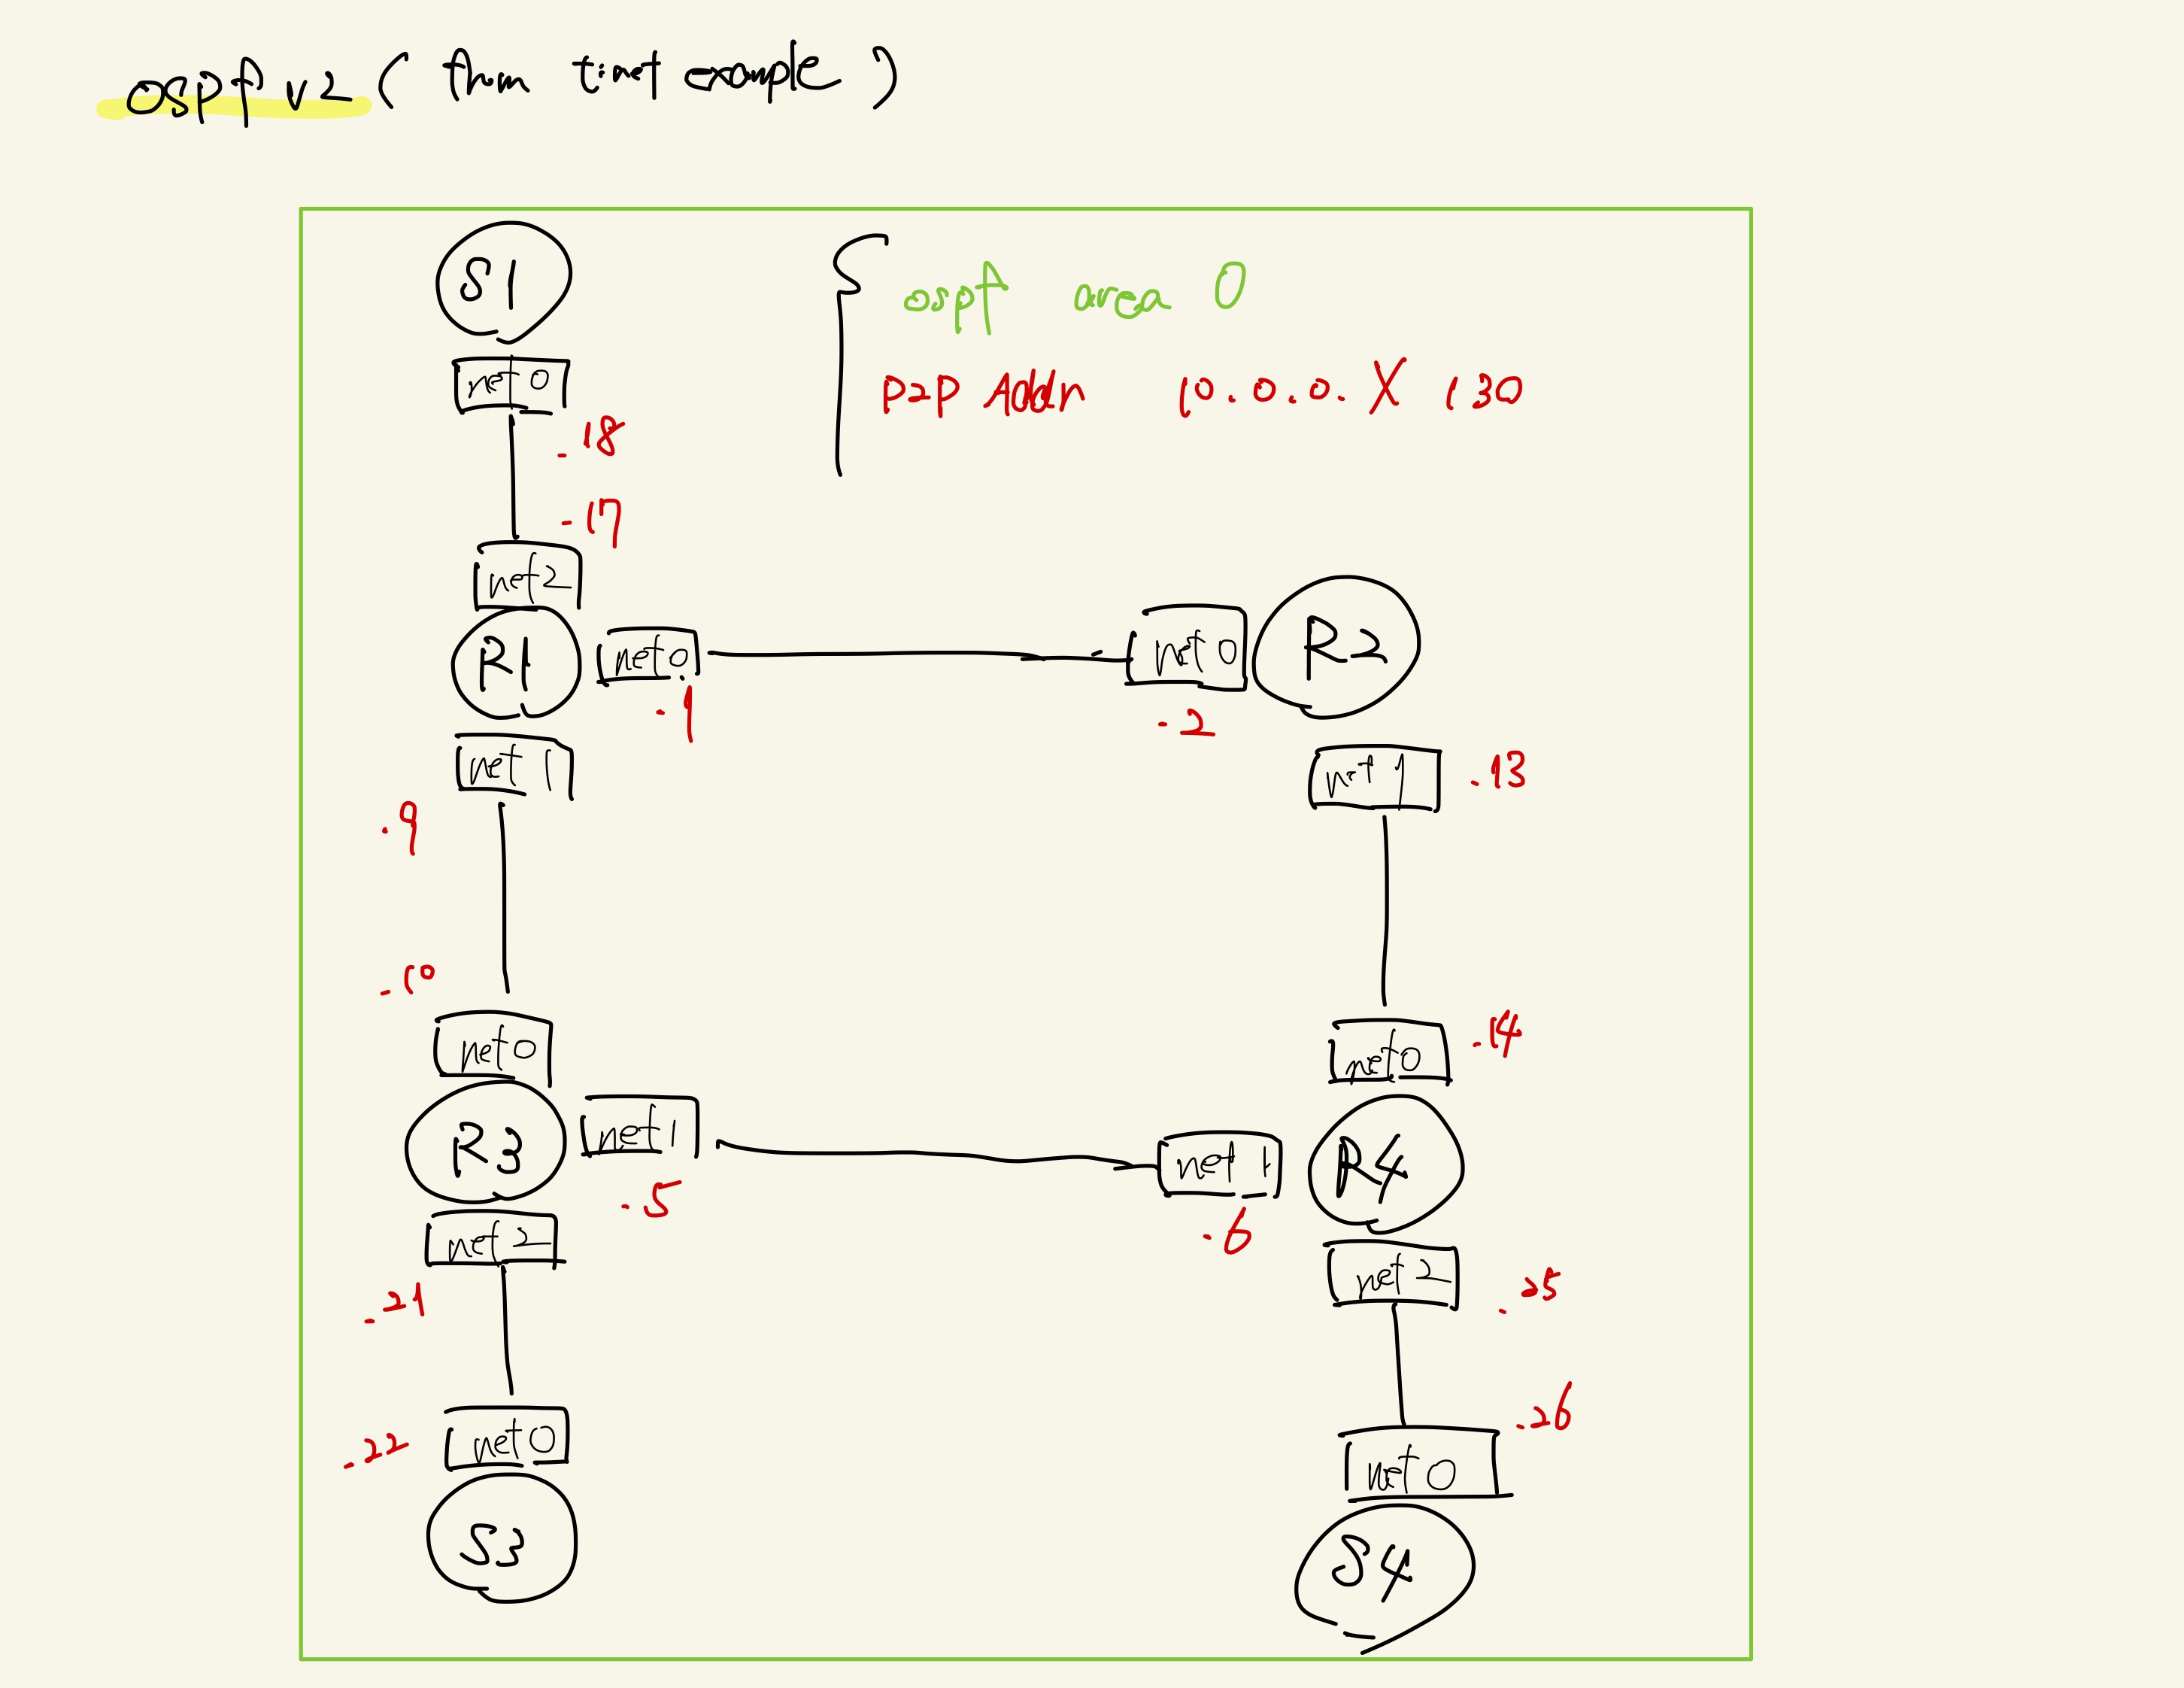 ospf v2 ( from tinet example )
S1
ospf area 0
net0
p2p Addr 10.0.0.X /30
.18
.17
net2
R1 net0 net0 R2
.1 .2
net1 net1 .13
.9
.10
net0 net0 .14
R3 net1 net1 R4
.5 .6
net2 net2 .25
.21
.26
.22 net0 net0
S3 S4